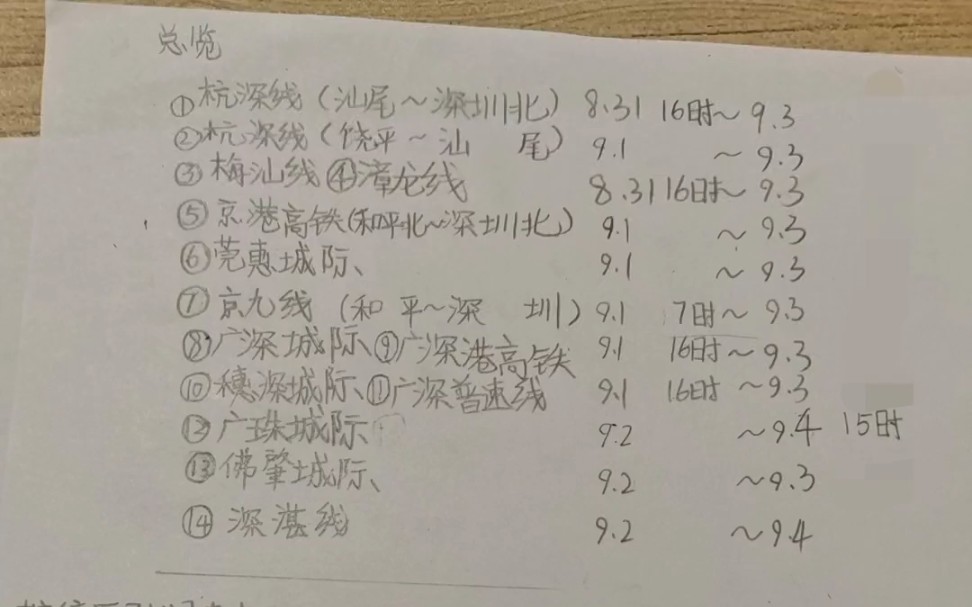 总览
①杭深线（汕尾～深圳北）8.31 16时～9.3
②杭深线（饶平～汕 尾）9.1 ～9.3
③梅汕线④漳龙线 8.31 16时～9.3
⑤京港高铁(和平北～深圳北) 9.1 ～9.3
⑥莞惠城际、 9.1 ～9.3
⑦京九线（和 平～深 圳）9.1 7时～9.3
⑧广深城际、⑨广深港高铁 9.1 16时～9.3
⑩穗深城际、⑪广深普速线 9.1 16时 ～9.3
⑫广珠城际、 9.2 ～9.4 15时
⑬佛肇城际、 9.2 ～9.3
⑭深湛线 9.2 ～9.4